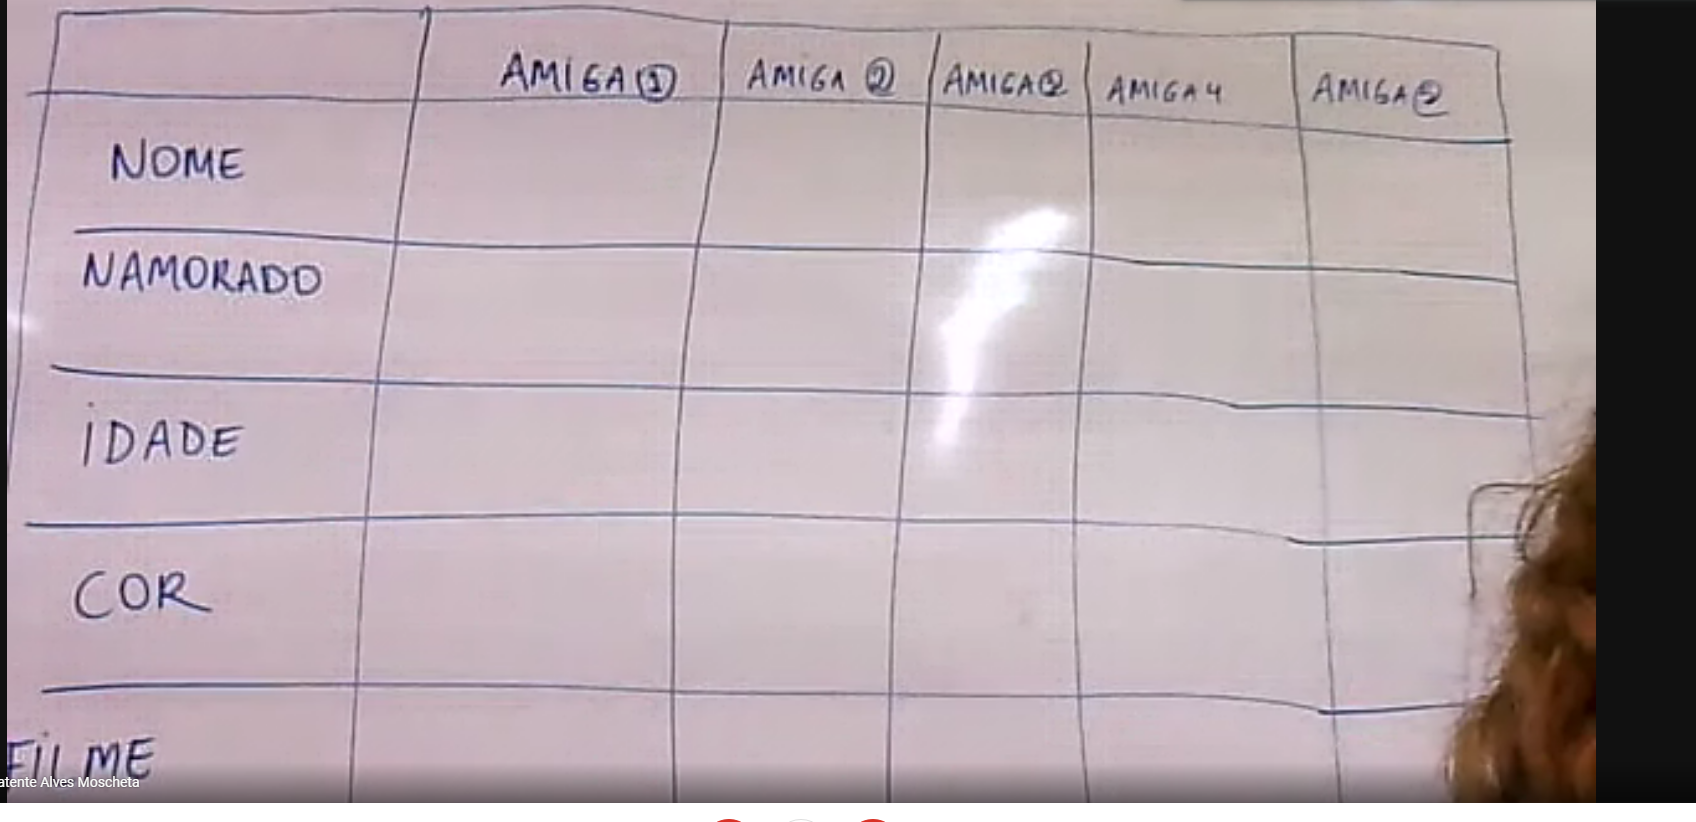 AMIGA ① AMIGA ② AMIGA ② AMIGA 4 AMIGA
NOME
NAMORADO
IDADE
COR
FILME
atente Alves Moscheta